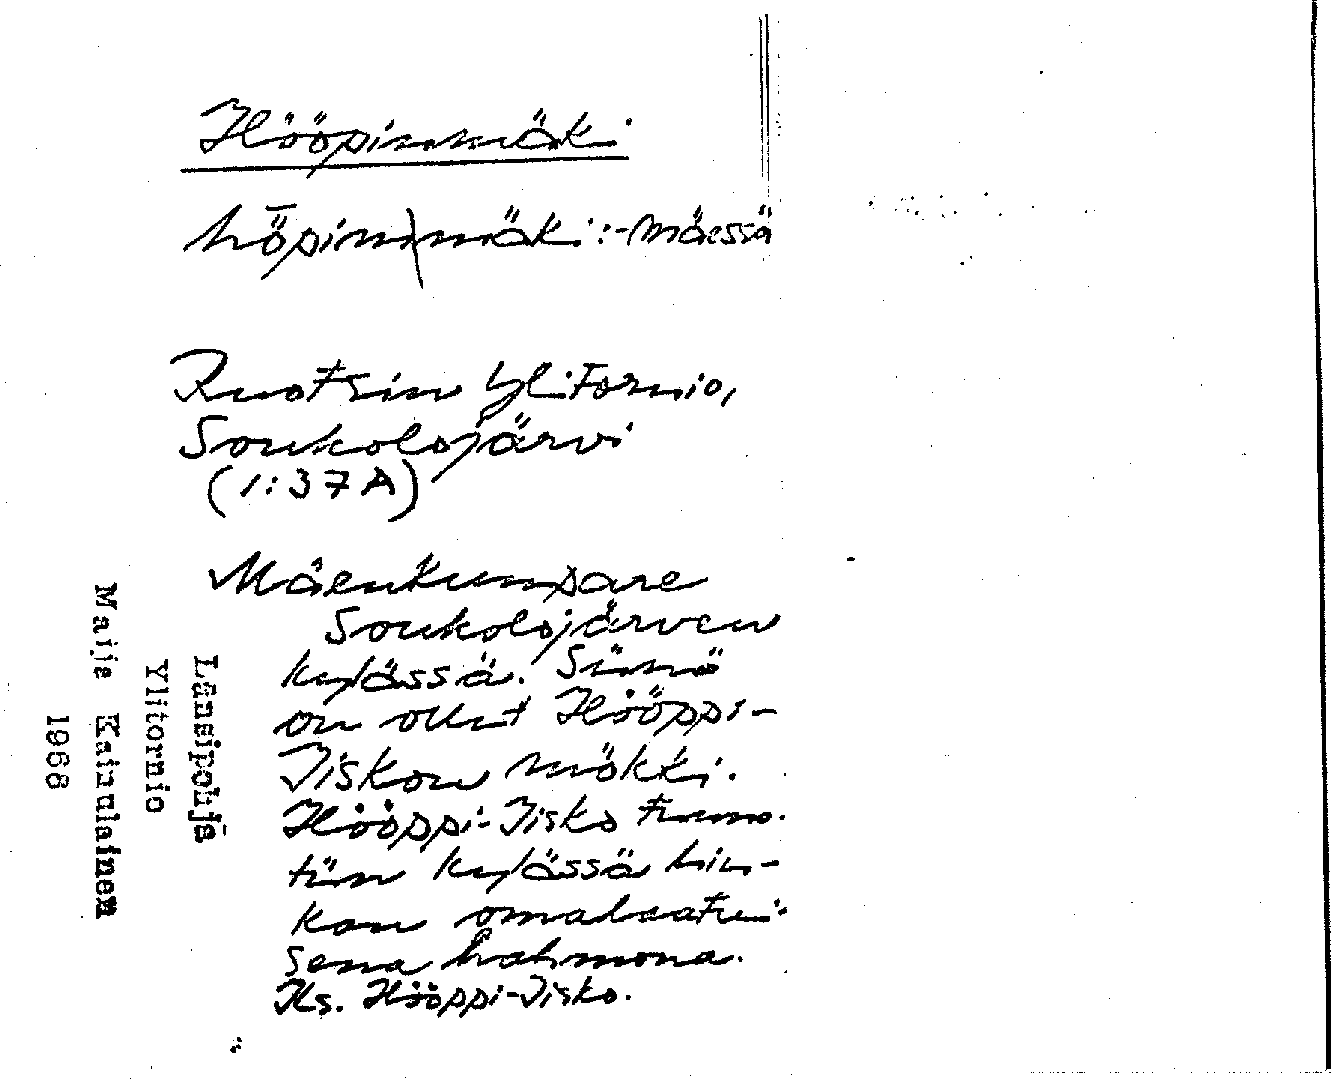 Hööpinmäki
hȫpin|mäki: -mäessä
Ruotsin Ylitornio,
Soukolojärvi
(1:37A)
Mäenkumpare
Soukolojärven
kylässä. Siinä
on ollut Hööppi-
Iiskon mökki.
Hööppi-Iisko tunnet-
tiin kylässä hiu-
kan omalaatui-
sena hahmona.
Ks. Hööppi-Iisko.
Länsipohja
Ylitornio
Maija Kainulainen
1968